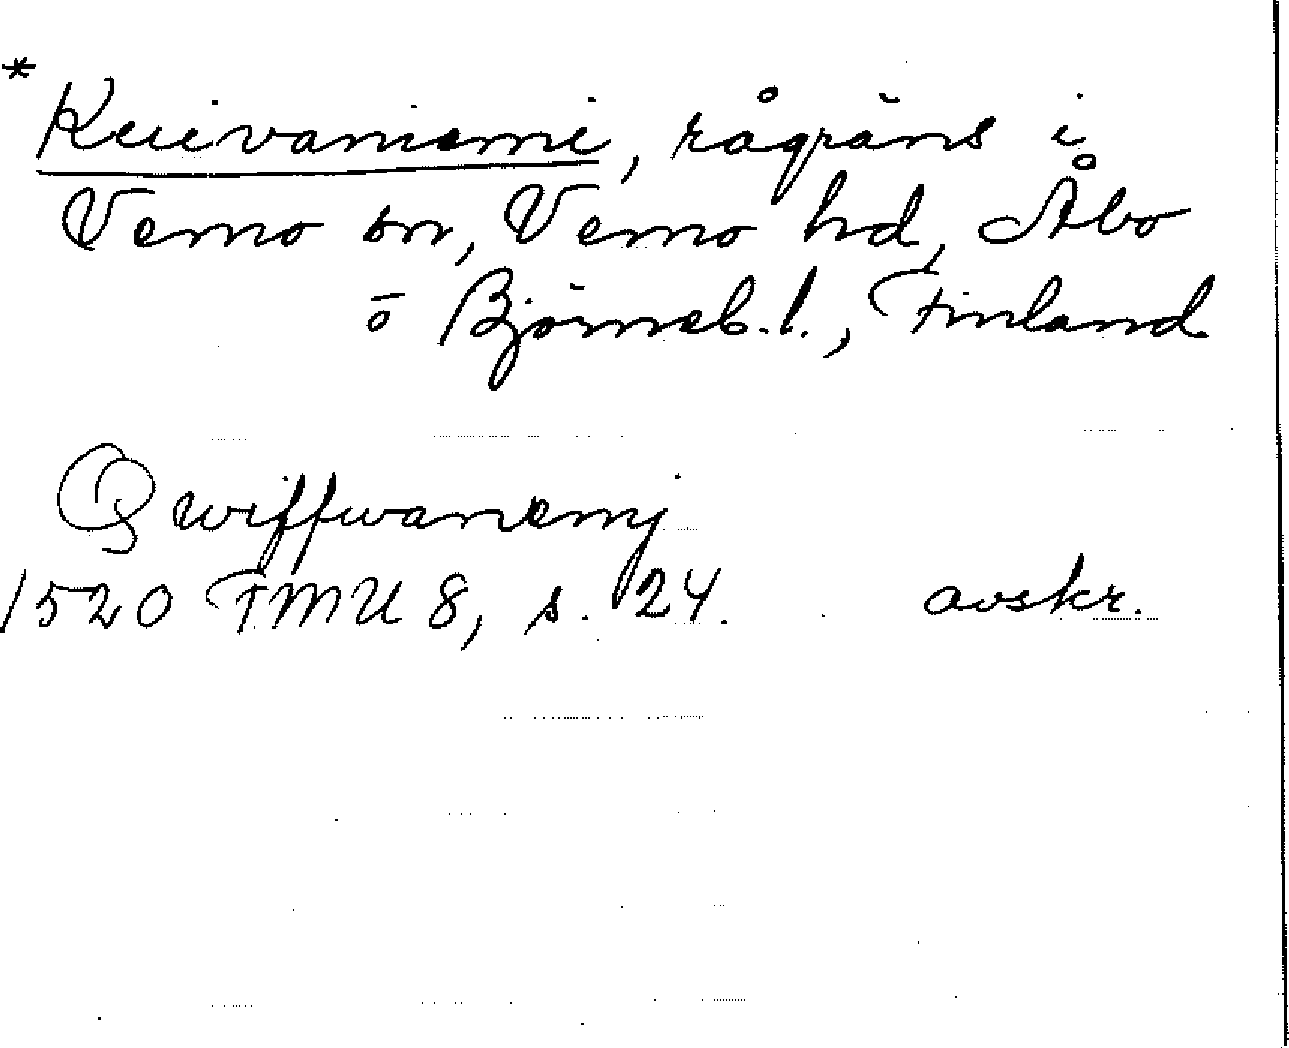 * Kuivaniemi, rågräns i
Vemo sn, Vemo hd, Åbo
o Björneb. l., Finland
Qwiffwanemj
1520 FMU 8, s. 24. avskr.